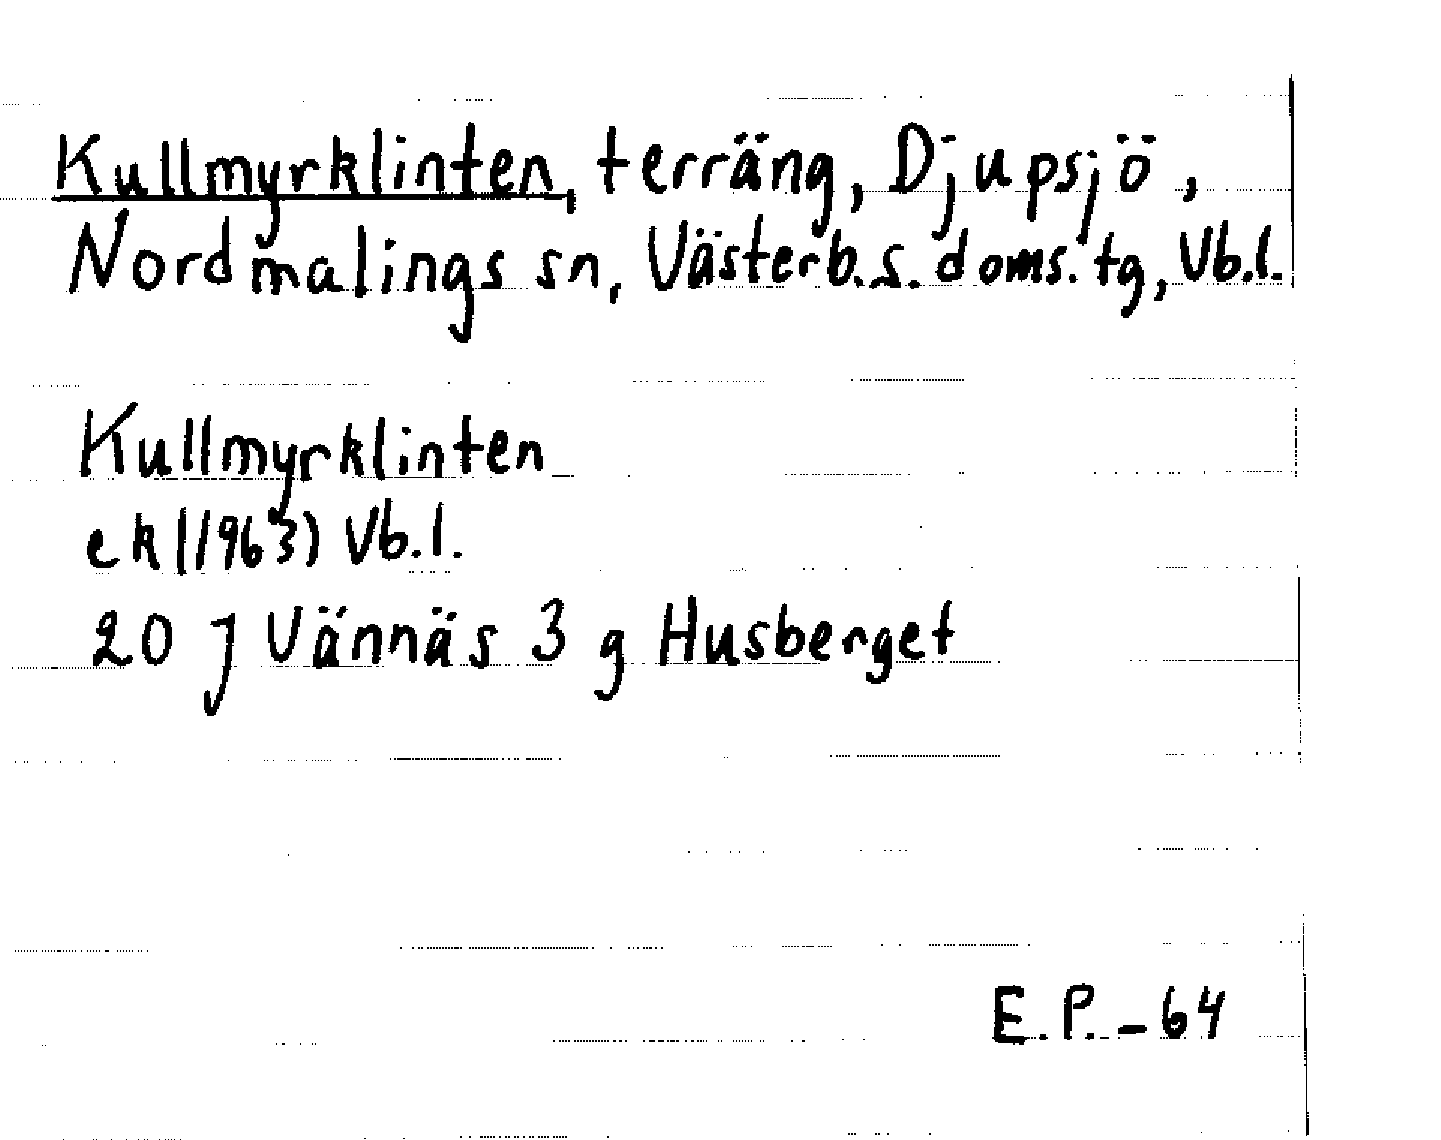 Kullmyrklinten, terräng, Djupsjö,
Nordmalings sn, Västerb.s. doms. tg, Vb.l.
Kullmyrklinten
ek (1963) Vb.l.
20 J Vännäs 3 g Husberget
E.P. - 64